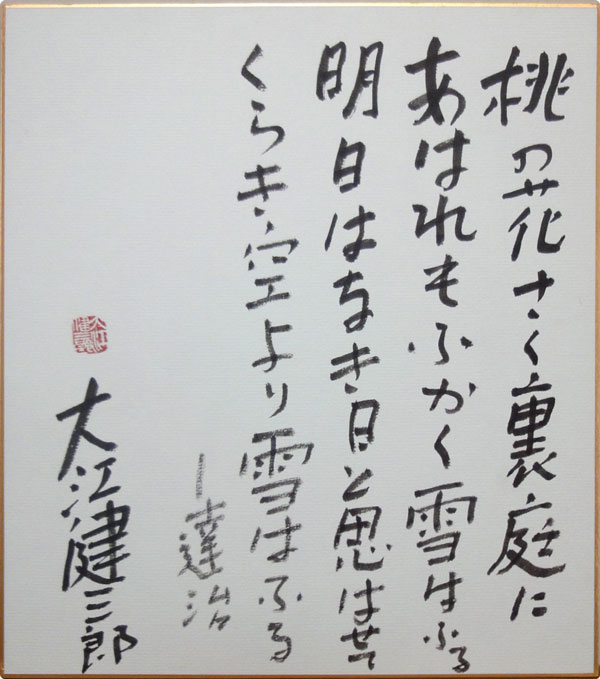 桃の花さく裏庭に
あはれもふかく雪はふる
明日はなき日と思はせて
くらき空より雪はふる
―達治
大江健三郎